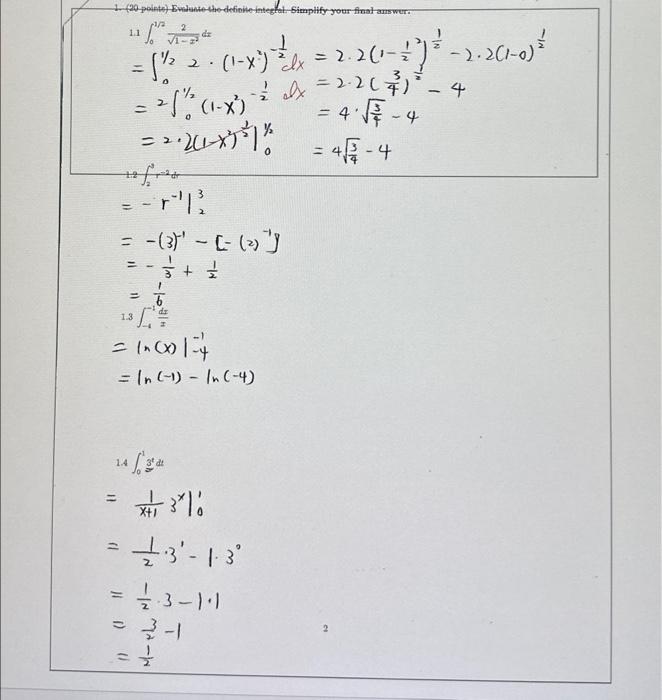 1. (20 points) Evaluate the definite integral. Simplify your final answer.
1.1 ∫₀^{1/2} 2/√(1-x²) dx
= ∫₀^{1/2} 2 · (1-x²)^{-1/2} dx = 2·2(1-½²)^{1/2} - 2·2(1-0)^{1/2}
= 2∫₀^{1/2} (1-x²)^{-1/2} dx = 2·2(3/4)^{1/2} - 4
= 4·√(3/4) - 4
= 2·2(1-x²)^{1/2} |₀^{1/2} = 4√(3/4) - 4
1.2 ∫₂³ r⁻² dr
= - r⁻¹ |₂³
= -(3)⁻¹ - [-(2)⁻¹]
= - 1/3 + 1/2
= 1/6
1.3 ∫₋₄⁻¹ dx/x
= ln(x) |₋₄⁻¹
= ln(-1) - ln(-4)
1.4 ∫₀¹ 3ᵗ dt
= 1/(x+1) 3ˣ |₀¹
= 1/2 · 3¹ - 1 · 3⁰
= 1/2 · 3 - 1·1
= 3/2 - 1
= 1/2
2